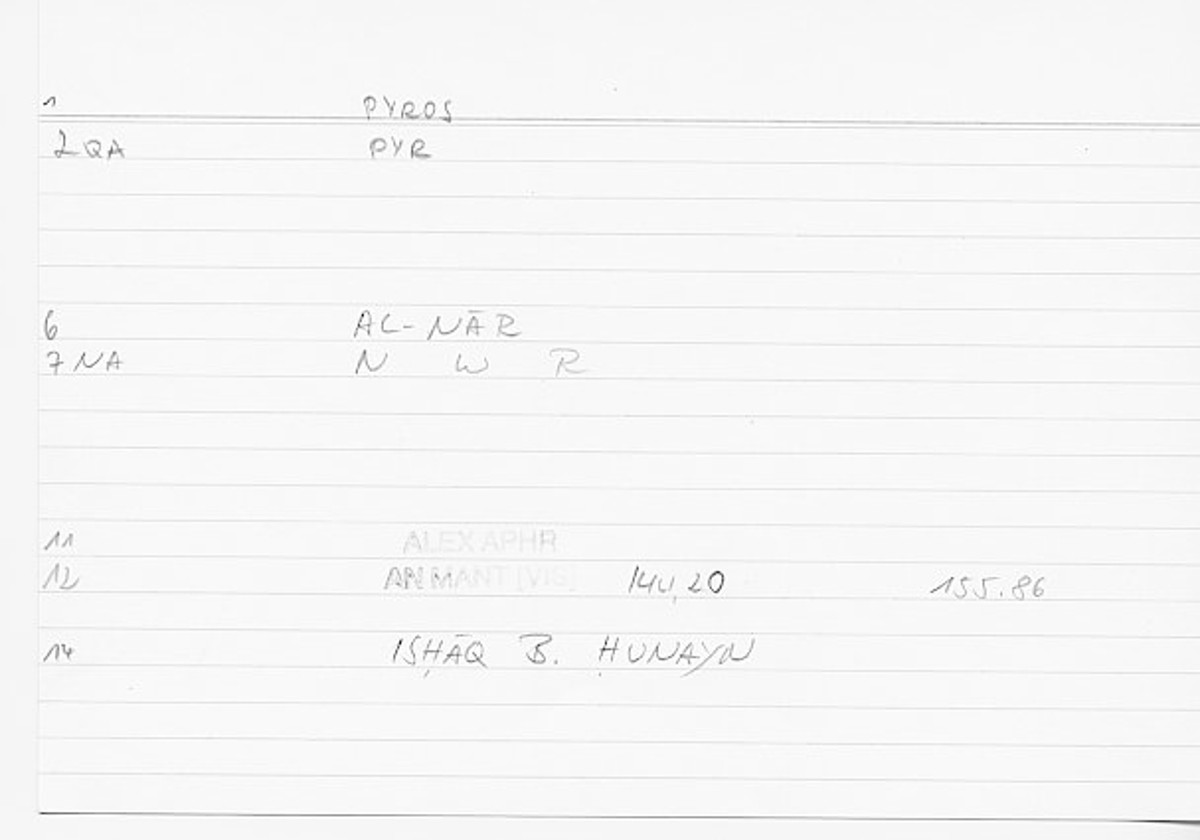 1 PYROS
2QA PYR
6 AL-NĀR
7NA N W R
11 ALEX APHR
12 AN MANT [VIS] 14u,20 155.86
14 ISḤĀQ B. ḤUNAYN